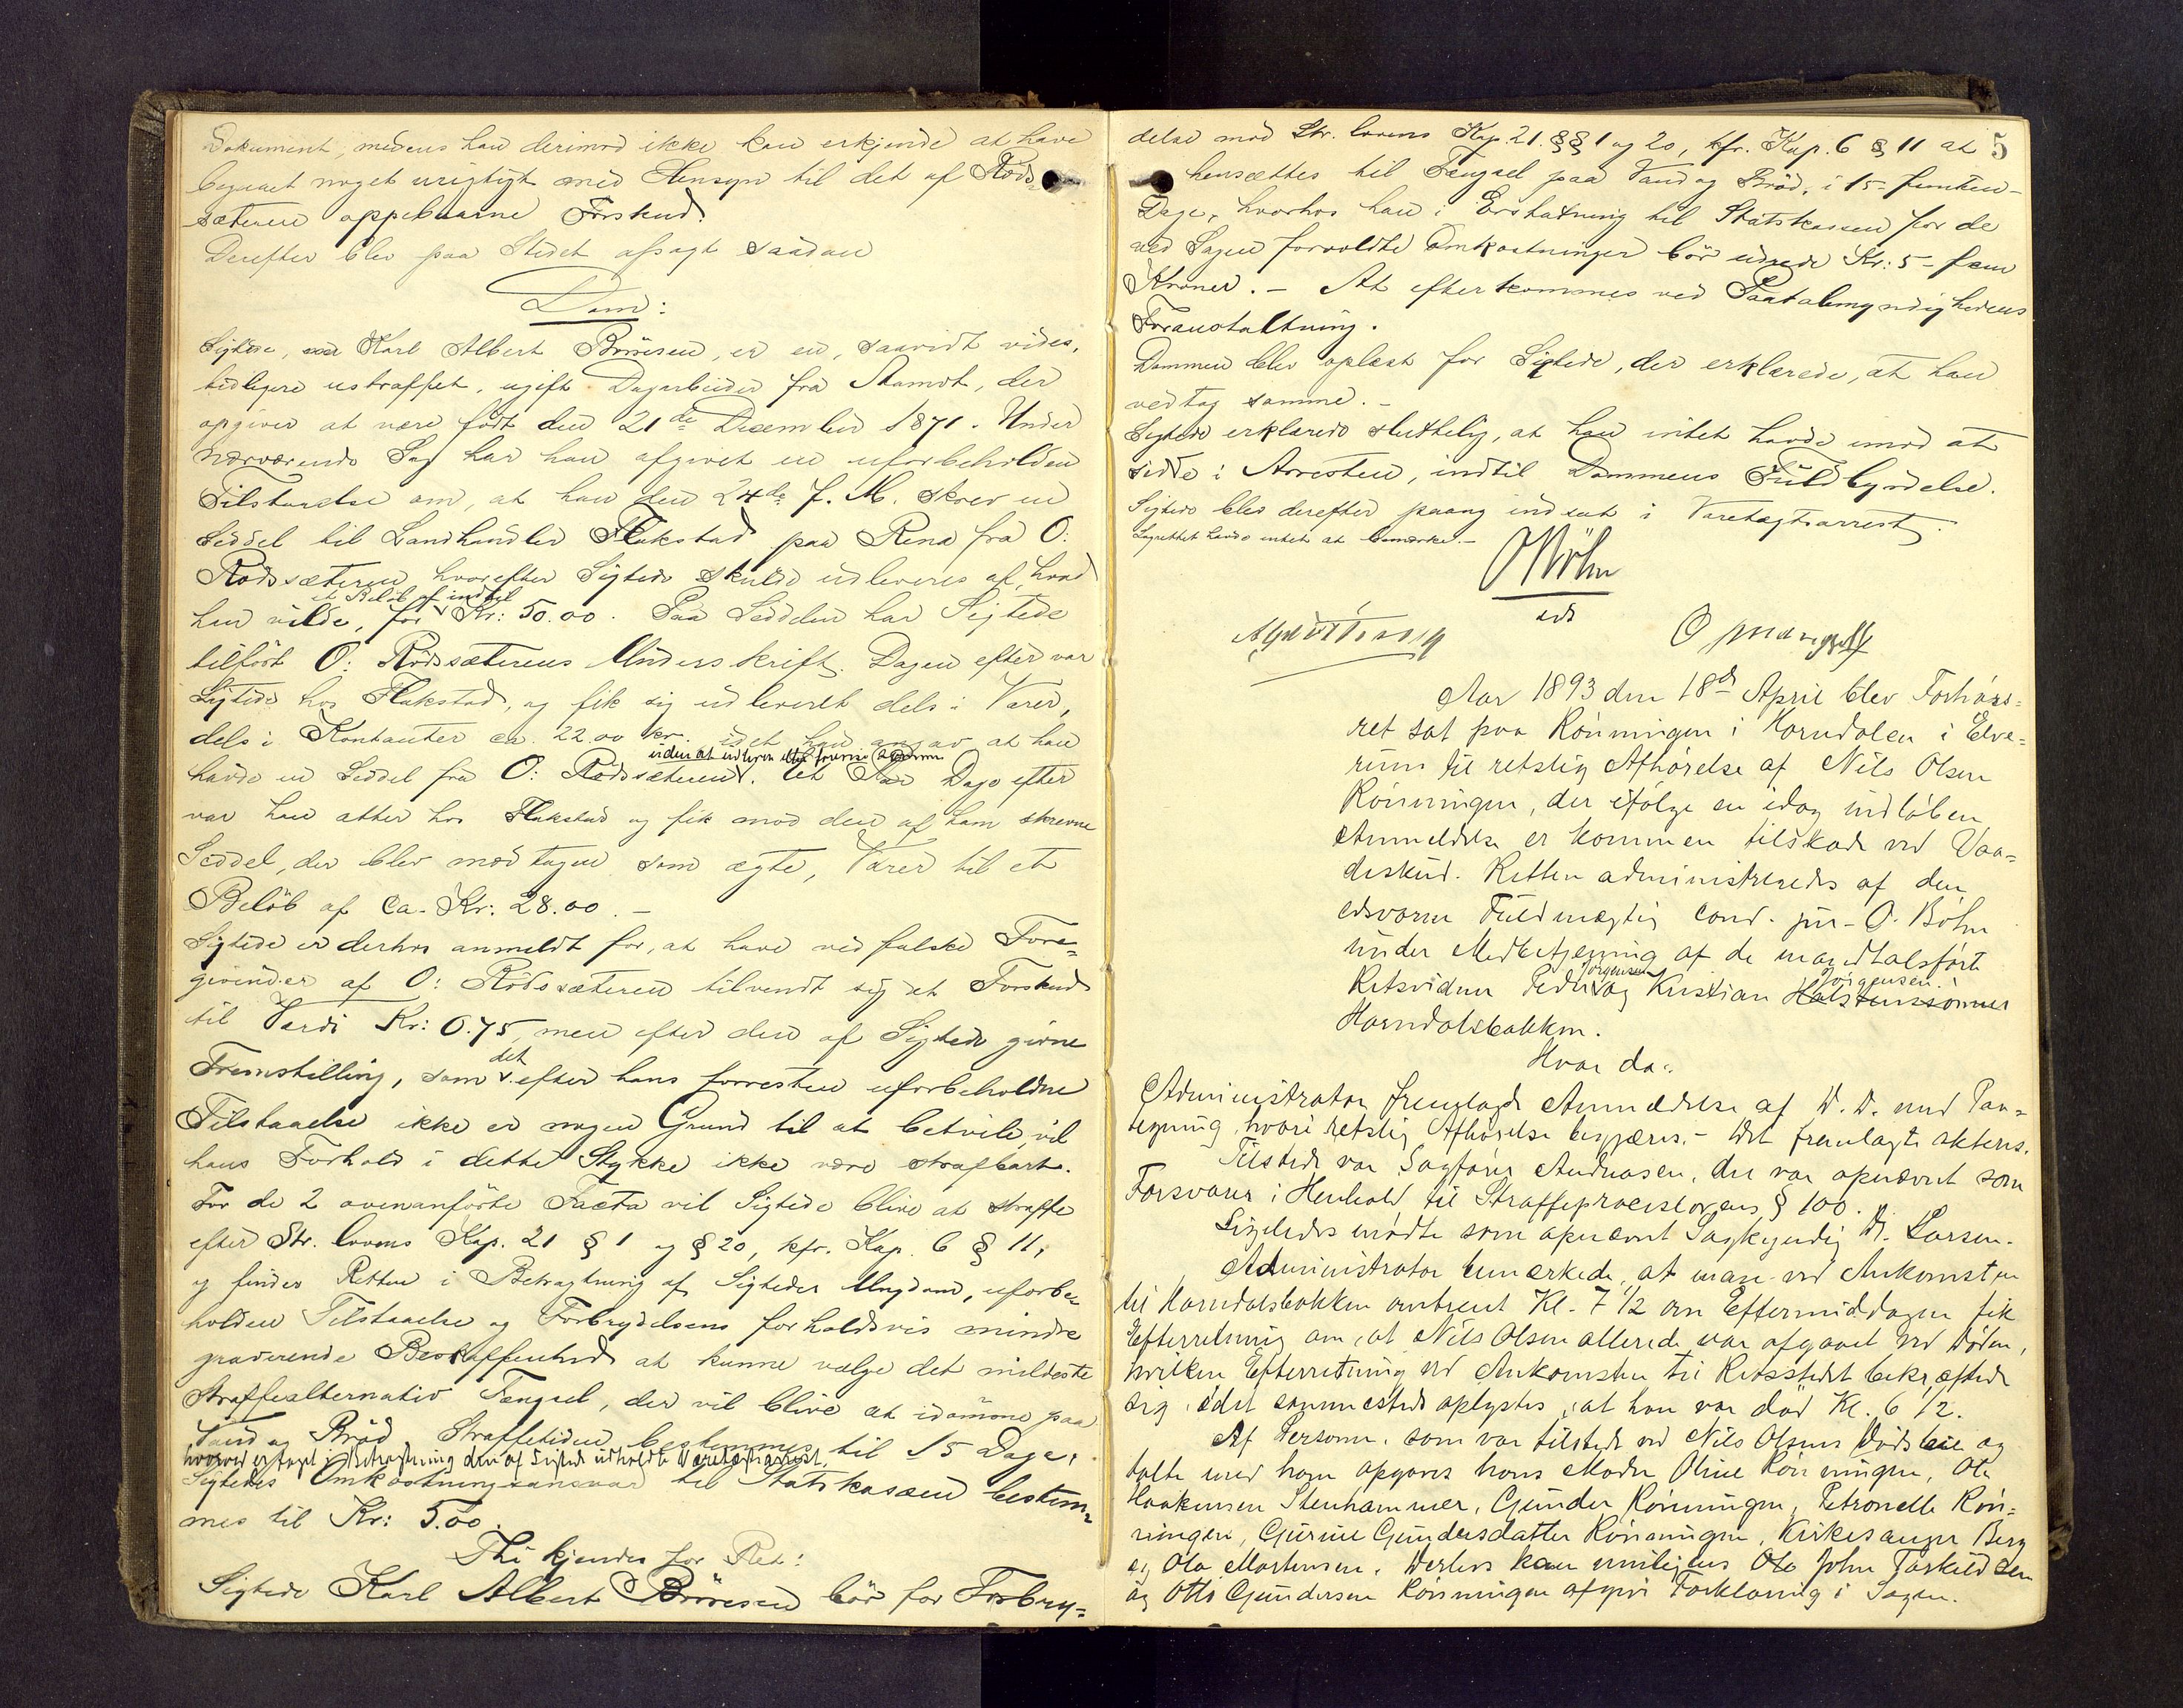 Dokument, medens han derimod ikke kan erkjende at have
begaaet noget urigtigt med Hensyn til det af Röds-
sæteren oppebaarne Forskud.
Derefter blev paa Stedet afsagt saadan
Dom:
Sigtede, Karl Albert Börresen, er en, saavidt vides,
tidligere ustraffet, ugift Dagarbeider fra Aamot, der
opgiver at være födt den 21de December 1871. Under
nærværende Sag har han afgivet en uforbeholden
Tilstaaelse om, at han den 24de f. M. skrev en
Seddel til Landhandler Flakstad paa Rena fra O:
Rödssæteren hvorefter Sigtede skulde udleveres af, hvad
et Beløb af indtil
han vilde, for Kr: 50.00. Paa Seddelen har Sigtede
tilfört O: Rödssæterens Underskrift. Dagen efter var
Sigtede hos Flakstad, og fik sig udleveret dels i Varer,
dels i Kontanter ca. 22.00 kr. idet han angav at han
uden at udlevere eller forevise Seddelen
havde en Seddel fra O: Rödssæteren. Et Par Dage efter
var han atter hos Flakstad og fik mod den af ham skrevne
Seddel, der blev modtagen som ægte, Varer til et
Belöb af ca. Kr: 28.00. -
Sigtede er derhos anmeldt for, at have ved falske Fore-
givender af O: Rödssæteren tilvendt sig et Forskud
til Værdi Kr: 0.75, men efter den af Sigtede givne
det
Fremstilling, som efter hans forresten uforbeholdne
Tilstaaelse ikke er nogen Grund til at betvile, vil
hans Forhold i dette Stykke ikke være strafbart.
For de 2 ovenanförte Facta vil Sigtede blive at straffe
efter Str. lovens Kap. 21 § 1 og § 20, kfr. Kap. 6 § 11,
og finder Retten i Betragtning af Sigtedes Ungdom, uforbe-
holden Tilstaaelse og Forbrydelsens forholdsvis mindre
graverende Beskaffenhed at kunne vælge det mildeste
Straffealternativ Fængsel, der vil blive at idömme paa
Vand og Bröd. Straffetiden bestemmes til 15 Dage,
hvorved er taget i Betragtning den af Sigtede udholdte Varetægtsarrest.
Sigtedes Omkostningsansvar til Statskassen bestem-
mes til Kr: 5.00.
Thi kjendes for Ret:
Sigtede Karl Albert Börresen bör for Forbry-
5
delse mod Str. lovens Kap. 21. §§ 1 og 20, kfr. Kap. 6 § 11 at
hensættes til Fængsel paa Vand og Bröd, i 15 - femten -
Dage, hvorhos han i Erstatning til Statskassen for de
ved Sagen forvoldte Omkostninger bör udrede Kr: 5 - fem
Kroner. - At efterkommes ved Paatalemyndighedens
Foranstaltning.
Dommen blev oplæst for Sigtede, der erklærede, at han
vedtog samme. -
Sigtede erklærede sluttelig, at han intet havde imod at
sidde i Arresten, indtil Dommens Fuldbyrdelse.
Sigtede blev derefter paany indsat i Varetægtsarrest.
Lagrettet havde intet at bemærke. -
O Böhm
eds
Aar 1893 den 18de April blev Forhörs-
ret sat paa Rönningen i Horndalen i Elve-
rum til retslig Afhörelse af Nils Olsen
Rönningen, der ifölge en idag indlöben
Anmeldelse er kommen tilskade ved Vaa-
deskud. Retten administreredes af den
edsvorne Fuldmægtig cand. jur. O. Böhm
under Medbetjening af de mandtalsförte
Jörgensen Jörgensen.
Retsvidner Peder og Kristian
Horndalsbakken.
Hvor da:
Administrator fremlagde Anmeldelse af D. D. med Paa-
tegning, hvori retslig Afhörelse begjæres. - Det fremlagte akteres.
Tilstede var Sagförer Andreasen, der var opnævnt som
Forsvarer i Henhold til Straffeproceslovens § 100.
Ligeledes mödte som opnævnt Sagkyndig Dr. Larsen.
Administrator bemærkede, at man ved Ankomsten
til Horndalsbakken omtrent Kl. 7 1/2 om Eftermiddagen fik
Efterretning om, at Nils Olsen allerede var afgaaet ved Döden,
hvilken Efterretning ved Ankomsten til Retsstedet bekræftede
sig, idet sammesteds oplystes, at han var död Kl. 6 1/2.
Af Personer, som var tilstede ved Nils Olsens Dödsleie og
talte med ham opgaves hans Moder Oline Rönningen, Ole
Haakensen Stenhammer, Gunder Rönningen, Petronelle Rön-
ningen, Gurine Gundersdatter Rönningen, Kirkesanger Berg
og Ola Mortensen. Derhos kan muligens Ole John Tarkildsen
og Otto Gundersen Rönningen afgive Forklaring i Sagen.